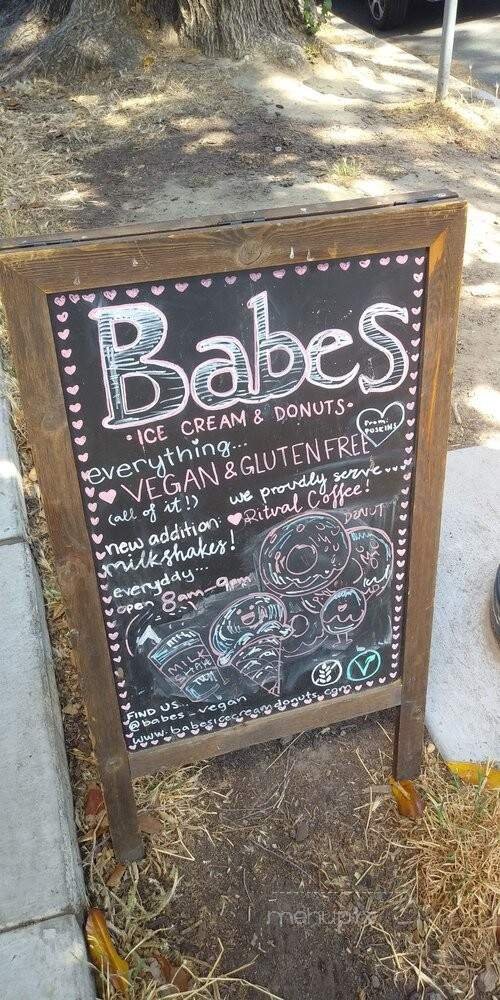 Babes
·ICE CREAM & DONUTS·
everything...
VEGAN & GLUTEN FREE
(all of it!)
we proudly serve...
Ritual Coffee!
new addition:
milkshakes!
everyday...
open 8am-9pm
DONUT
MILK
SHAKE
FIND US
@babes_vegan
www.babesicecreamdonuts.com
menupix